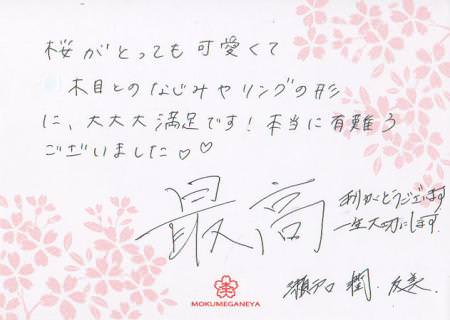 桜がとっても可愛くて
木目とのなじみやリングの形
に、大大大満足です!本当に有難う
ございました♡♡
最高
ありがとうございます
一生大切にします。
瀬戸口 潤・友美
MOKUMEGANEYA